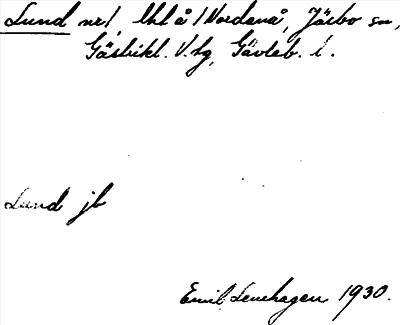 Lund nr 1, Ubl å 1 Nordanå, Järbo sn,
Gästrikl. V. tg, Gävleb. l.
Lund jb
Emil Lenehagen 1930.